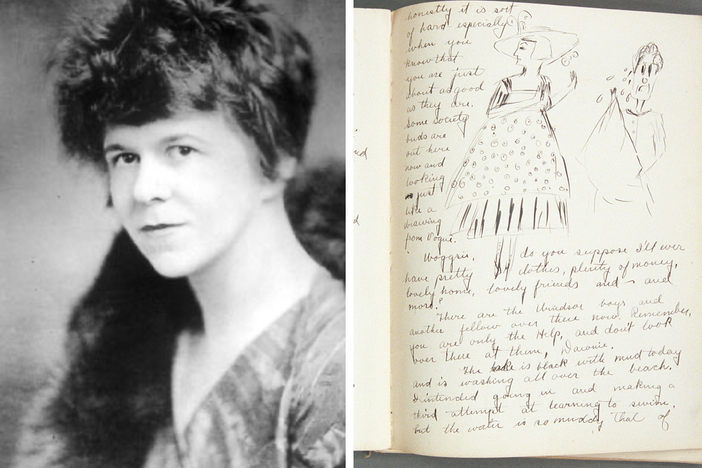 honestly it is sort
of hard especially
when you
know that
you are just
about as good
as they are.
Some society
buds are
out here
now and
looking
just
like a
drawing
from Vogue.
Woggsie, do you suppose I'll ever
have pretty clothes, plenty of money,
lovely home, lovely friends and - and
more?
There are the Windsor boys and
another fellow over there now. Remember,
you are only the Help, and don't look
over there at them,
The lake is black with mud today
and is washing all over the beach.
I intended going in and making a
third attempt at learning to swim.
but the water is so muddy that of